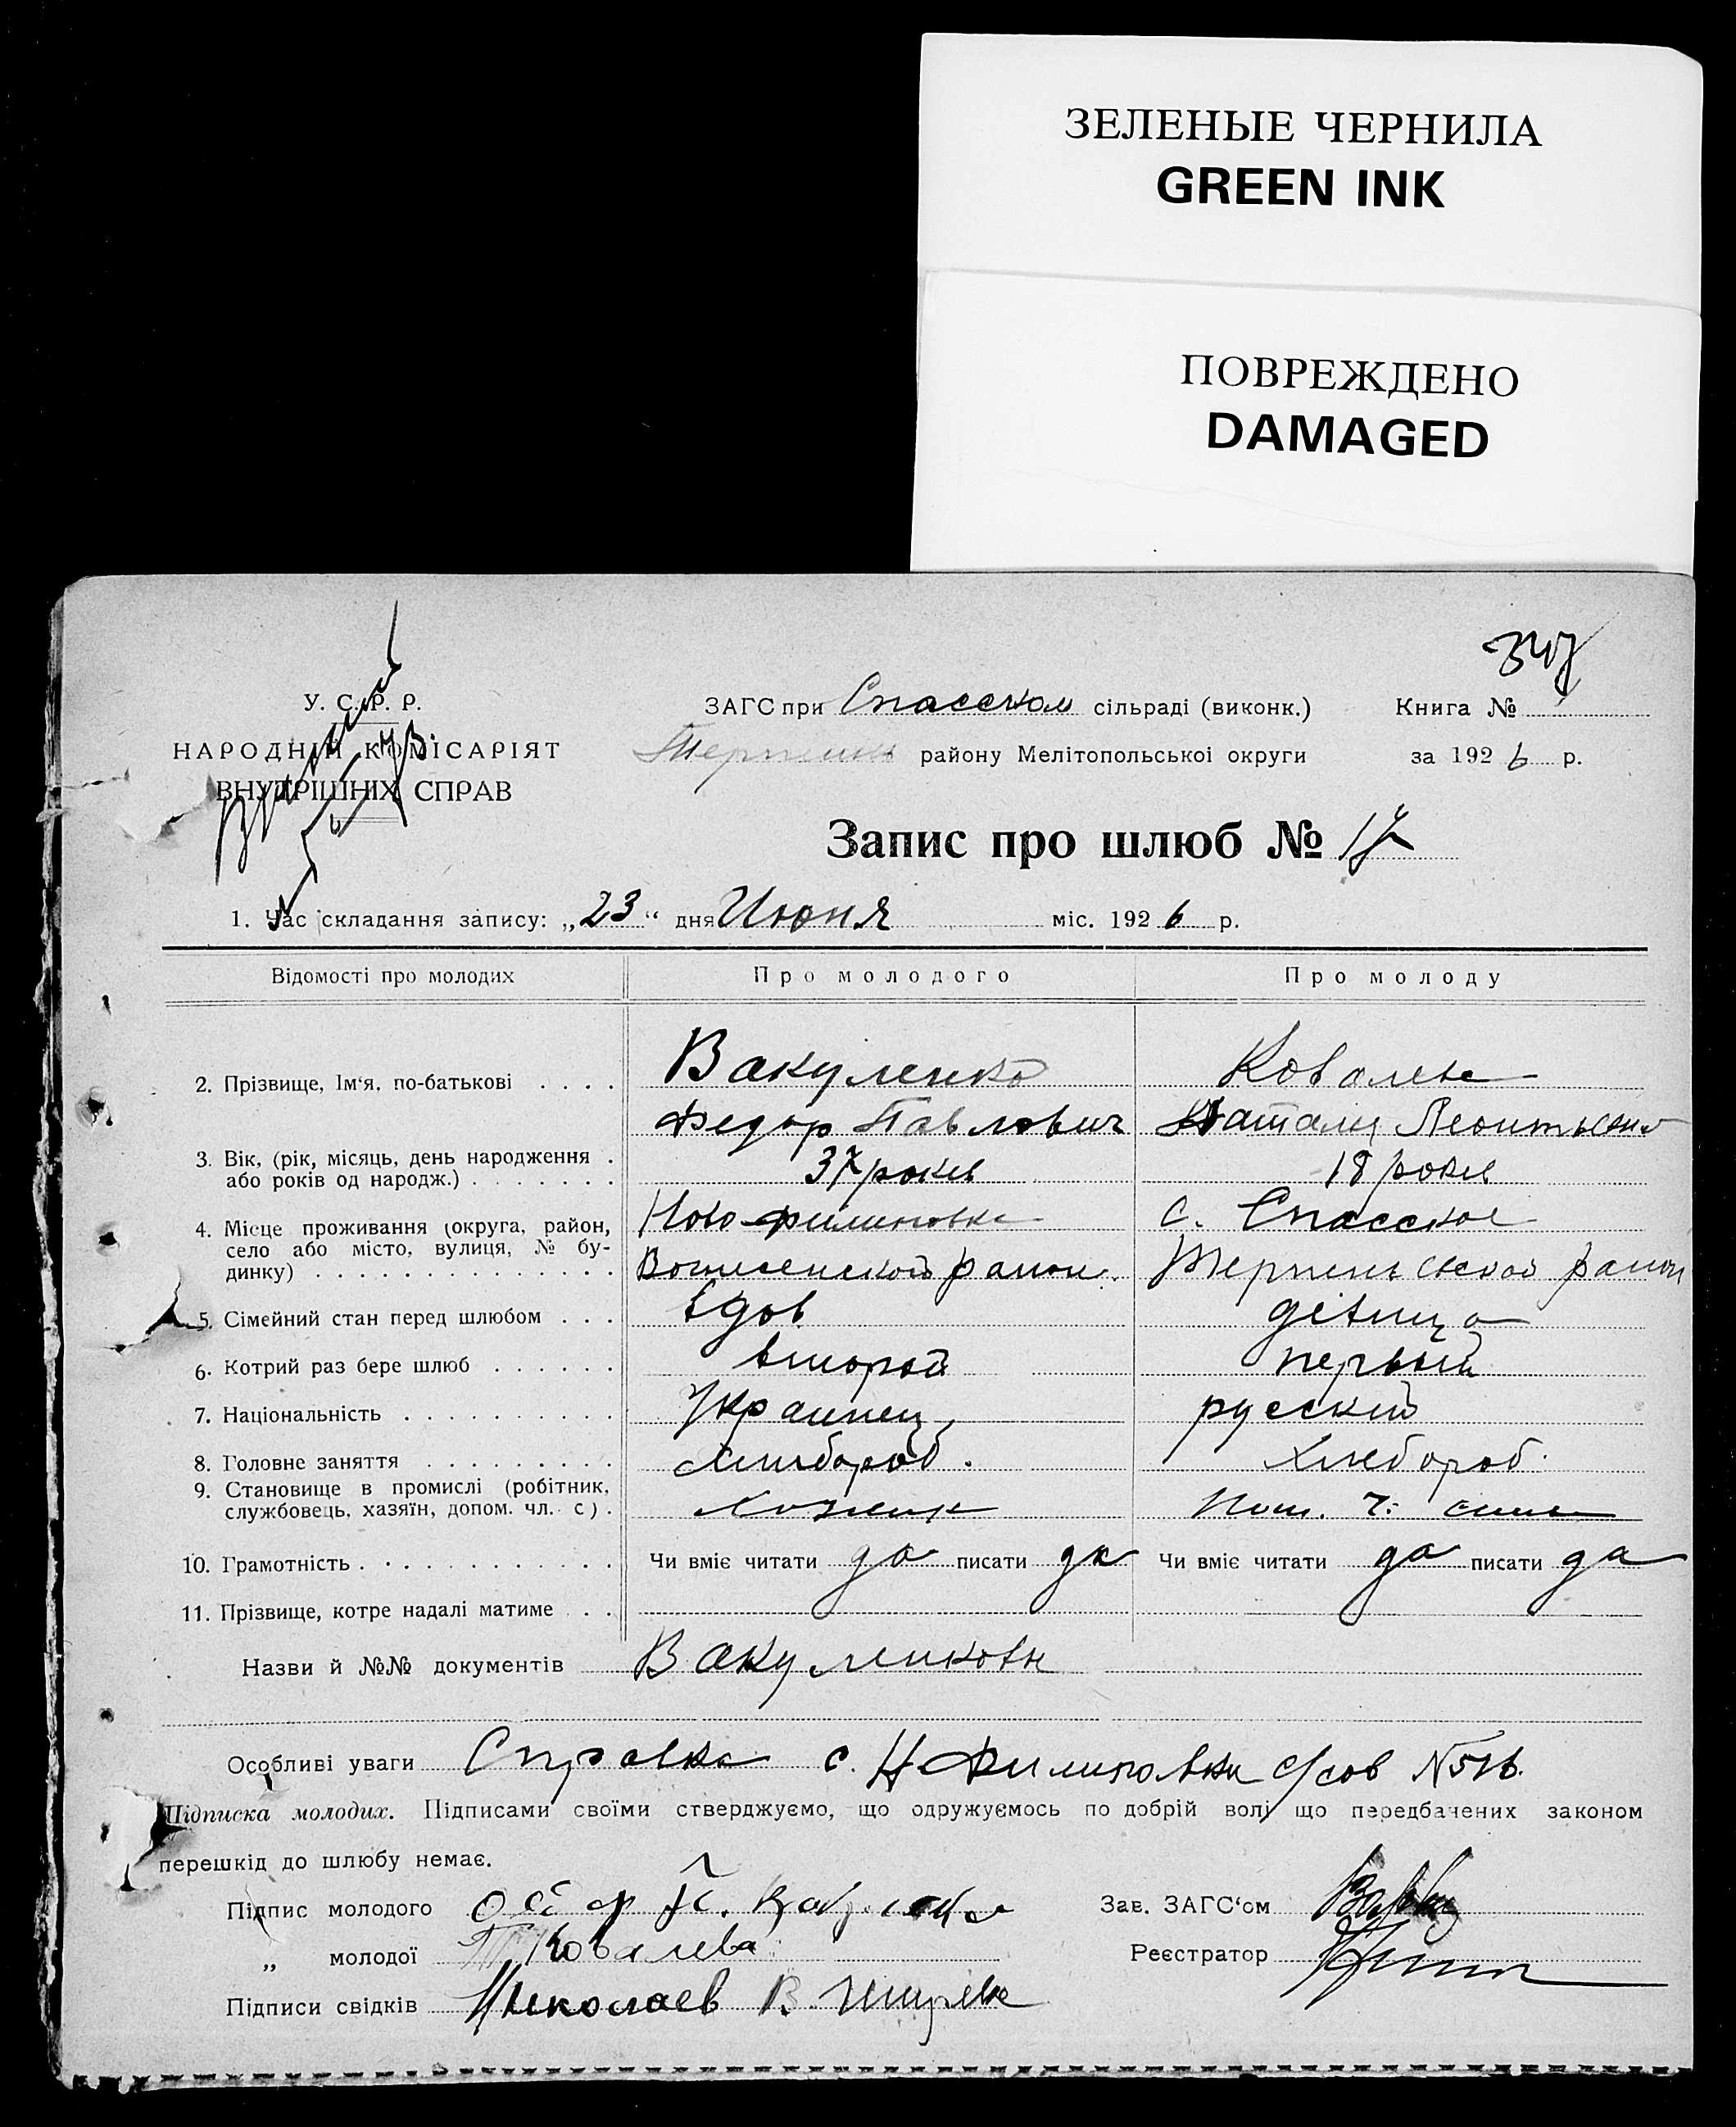 ЗЕЛЕНЫЕ ЧЕРНИЛА
GREEN INK
ПОВРЕЖДЕНО
DAMAGED
У. С. Р. Р.
НАРОДНІЙ КОМІСАРІЯТ
ВНУТРІШНІХ СПРАВ
ЗАГС при Спасском сільраді (виконк.)
району Мелітопольської округи
Книга №
за 1926 р.
Запис про шлюб № 17
1. Час складання запису: „23“ дня Июня міс. 1926 р.
Відомості про молодих Про молодого Про молоду
2. Прізвище, Ім‘я, по-батькові . . . . Вакуленко Ковалева
Федор Павлович Наталя Леонтьевна
3. Вік, (рік, місяць, день народження .
або років од народж.) . . . . . . . 37 років 18 років
4. Місце проживання (округа, район,
село або місто, вулиця, № бу-
динку) . . . . . . . . . . . . . .
Ново-филиповка с. Спасское
район. Терпеньевской район
5. Сімейний стан перед шлюбом . . . вдов девица
6. Котрий раз бере шлюб . . . . . . второй первый
7. Національність . . . . . . . . . . Украинец русский
8. Головне заняття . . . . . . . . . Хлибороб. Хлебороб.
9. Становище в промислі (робітник,
службовець, хазяїн, допом. чл. с) .
Хозяин ч.
10. Грамотність . . . . . . . . . . . . Чи вміє читати да писати да Чи вміє читати да писати да
11. Прізвище, котре надалі матиме . . .
Назви й №№ документів Вакуленковы
Особливі уваги Справка с. Н Филиповки с/сов №
Підписка молодих. Підписами своїми стверджуємо, що одружуємось по добрій волі що передбачених законом
перешкід до шлюбу немає.
Підпис молодого
Зав. ЗАГС‘ом
„ молодої Ковалева
Реєстратор
Підписи свідків Николаев В.